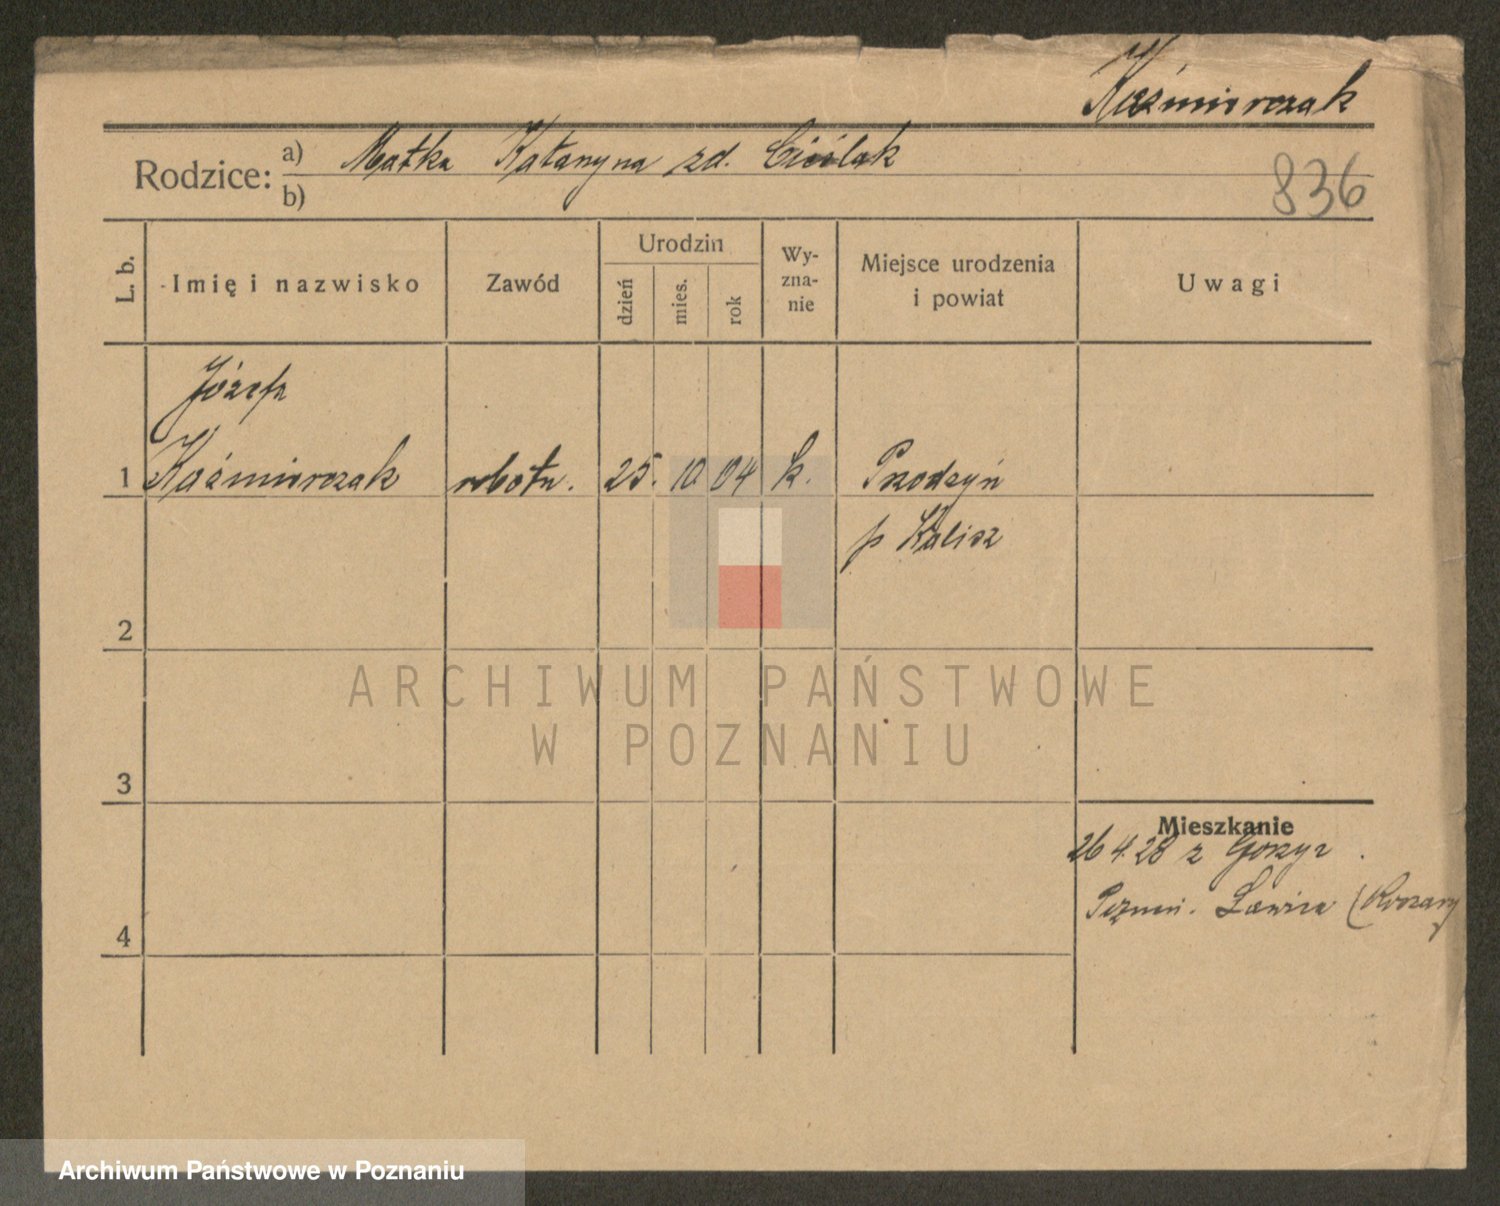 Kaźmierczak
Rodzice: a) Matka Katarzyna zd. Cieślak
b)
836
L. b. Imię i nazwisko Zawód Urodzin dzień mies. rok Wy-zna-nie Miejsce urodzenia i powiat Uwagi
Józef
1 Kaźmierczak robotn. 25. 10 04 k.
p Kalisz
2
ARCHIWUM PAŃSTWOWE
W POZNANIU
3
Mieszkanie
26 4 28 z
Poznań. Ławica
4
Archiwum Państwowe w Poznaniu